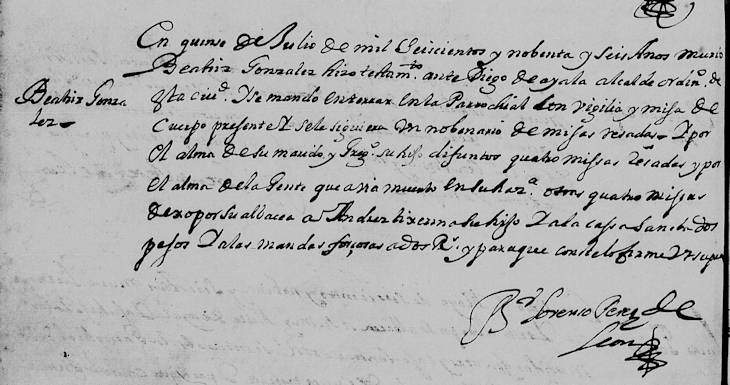 En quinse de Julio de mil Seiscientos y nobenta y seis Años murio
Beatriz Gonzalez hizo testamto. ante Diego de ayala alcalde ordino. de
Beatriz Gonza
lez
esta ciud. Y se mando enterrar en la Parrochial con vigilia y misa de
cuerpo presente Y se le siguiera un nobenario de missas resadas Y por
el alma de su marido y su hijo difuntos quatro missas resadas y por
el alma de la Gente que avia muerto en su haza. otras quatro missas
dexo por su albacea a Andres su hijo Y a la cassa Sancta dos
pesos Y a las mandas forçosas a dos Rs. y para que conste lo firme Vt supra
Br. Lorenso Perez de
Leon